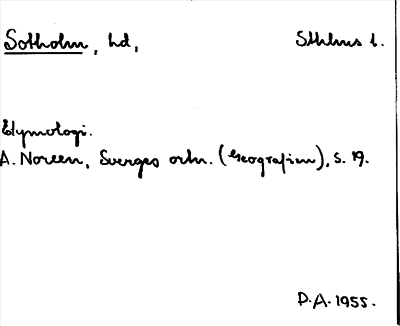 Sotholm, hd, Sthlms l.
Etymologi.
A. Noreen, Sverges ortn. (Geografien), s. 19.
D.A. 1955.